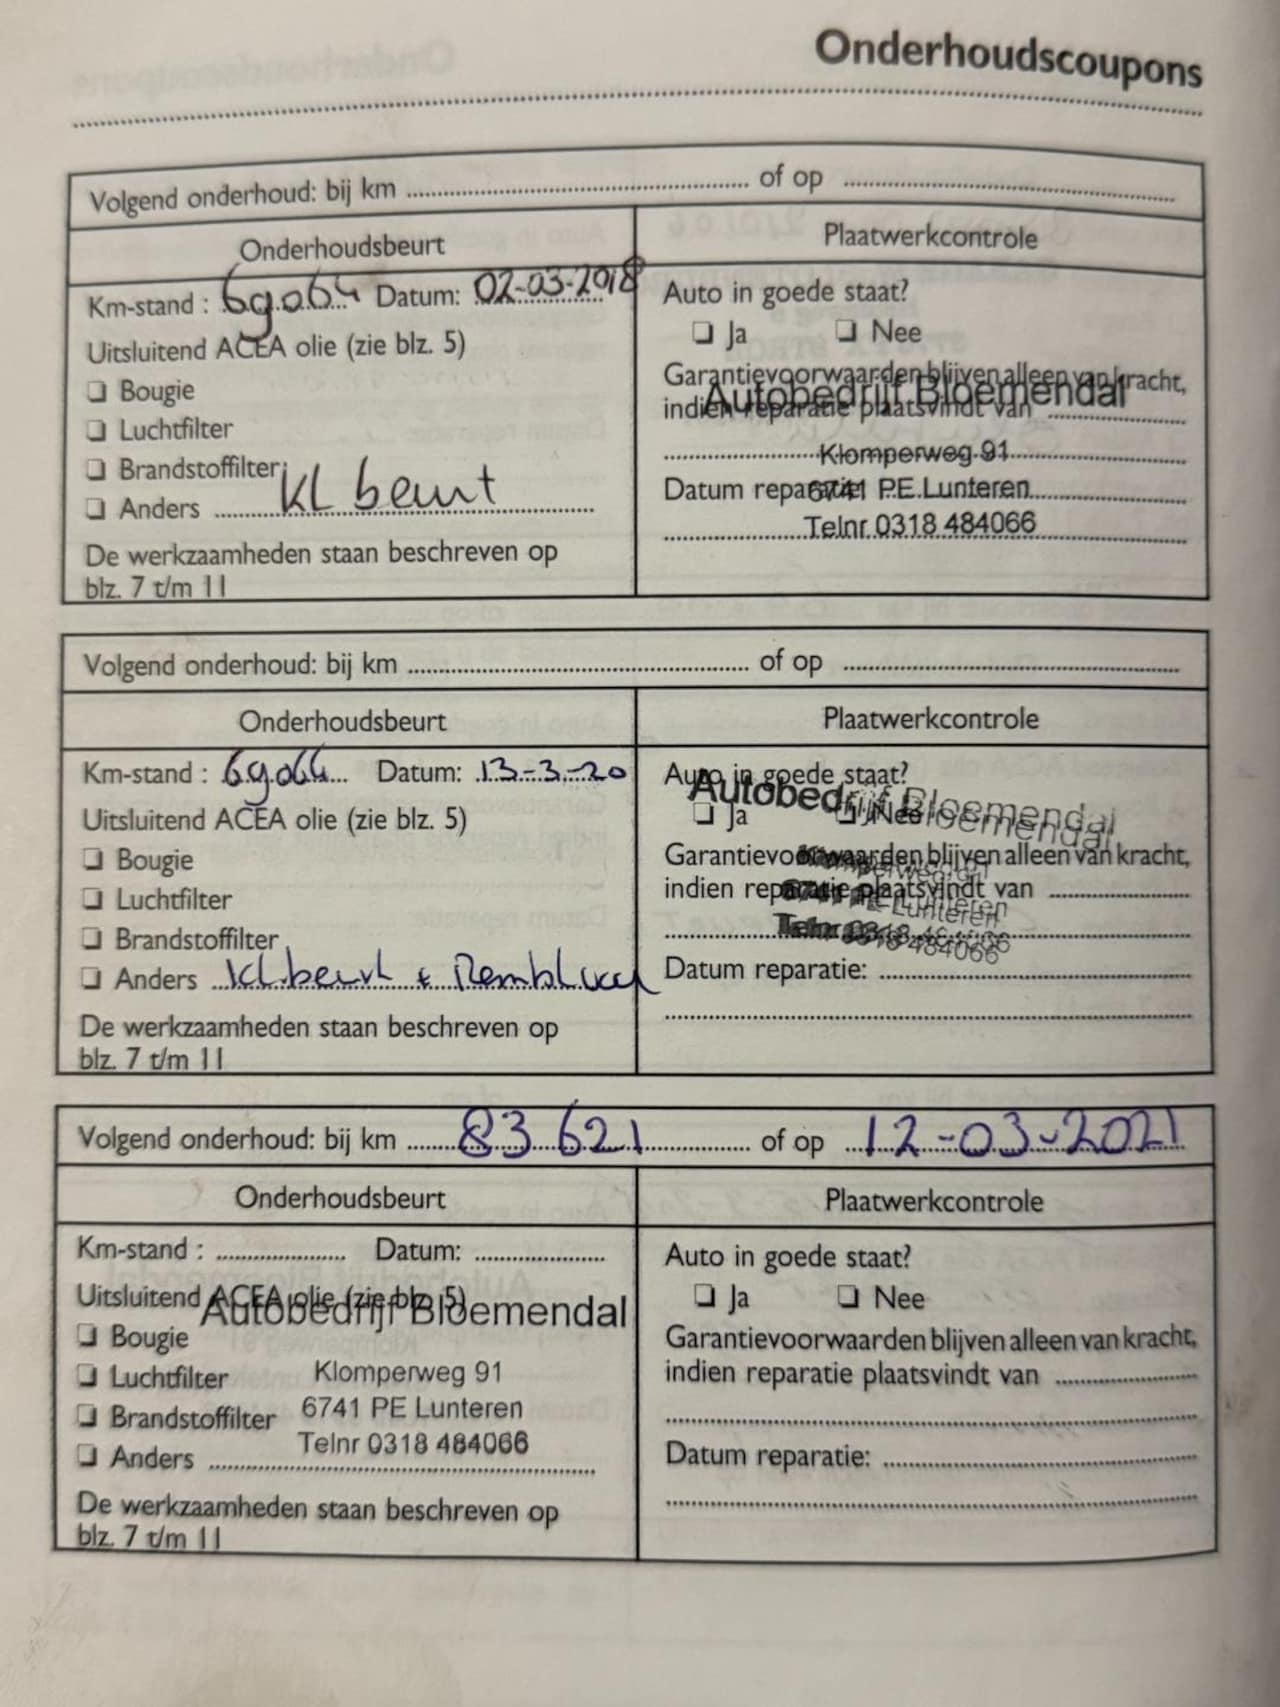 Onderhoudscoupons
Volgend onderhoud: bij km of op
Onderhoudsbeurt Plaatwerkcontrole
Km-stand : 69064 Datum: 02-03-2018
Auto in goede staat?
Uitsluitend ACEA olie (zie blz. 5)
Ja Nee
Bougie
Garantievoorwaarden blijven alleen van kracht,
Autobedrijf Bloemendal
indien reparatie plaatsvindt van
Luchtfilter
Klomperweg 91
Brandstoffilter
Datum reparatie:
6741 PE Lunteren
Anders KL beurt
Telnr 0318 484066
De werkzaamheden staan beschreven op
blz. 7 t/m 11
Volgend onderhoud: bij km of op
Onderhoudsbeurt Plaatwerkcontrole
Km-stand : 69064 Datum: 13-3-20
Auto in goede staat?
Autobedrijf Bloemendal
Uitsluitend ACEA olie (zie blz. 5)
Ja Nee
Bougie
Garantievoorwaarden blijven alleen van kracht,
Klomperweg 91
Luchtfilter
indien reparatie plaatsvindt van
6741 PE Lunteren
Brandstoffilter
Telnr 0318 484066
Anders Kl.beurt +
Datum reparatie:
De werkzaamheden staan beschreven op
blz. 7 t/m 11
Volgend onderhoud: bij km 83621 of op 12-03-2021
Onderhoudsbeurt Plaatwerkcontrole
Km-stand : Datum:
Auto in goede staat?
Uitsluitend ACEA olie (zie blz. 5)
Autobedrijf Bloemendal
Ja Nee
Bougie
Garantievoorwaarden blijven alleen van kracht,
Luchtfilter
Klomperweg 91
indien reparatie plaatsvindt van
Brandstoffilter
6741 PE Lunteren
Anders
Telnr 0318 484066
Datum reparatie:
De werkzaamheden staan beschreven op
blz. 7 t/m 11